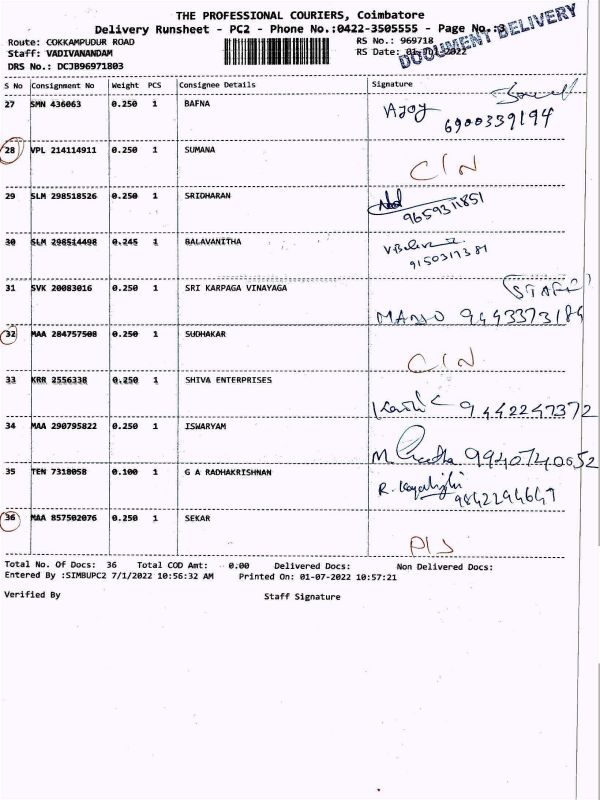 THE PROFESSIONAL COURIERS, Coimbatore
Delivery Runsheet - PC2 - Phone No.:0422-3505555 - Page No.:3
DOCUMENT DELIVERY
Route: COKKAMPUDUR ROAD RS No.: 969718
Staff: VADIVANANDAM RS Date: 01-Jul-2022
DRS No.: DCJB96971803
S No Consignment No Weight PCS Consignee Details Signature
27 SMN 436063 0.250 1 BAFNA AJOY
6900339194
28 VPL 214114911 0.250 1 SUMANA
C/N
29 SLM 298518526 0.250 1 SRIDHARAN
9659311851
30 SLM 298514498 0.245 1 BALAVANITHA
9150317381
31 SVK 20083016 0.250 1 SRI KARPAGA VINAYAGA STAFF
9443373184
32 MAA 284757508 0.250 1 SUDHAKAR
C/N
33 KRR 2556338 0.250 1 SHIVA ENTERPRISES
9442247372
34 MAA 290795822 0.250 1 ISWARYAM
M. 9940740652
35 TEN 7318058 0.100 1 G A RADHAKRISHNAN R.
9842294647
36 MAA 857502076 0.250 1 SEKAR
Total No. Of Docs: 36 Total COD Amt: 0.00 Delivered Docs: Non Delivered Docs:
Entered By :SIMBUPC2 7/1/2022 10:56:32 AM Printed On: 01-07-2022 10:57:21
Verified By Staff Signature